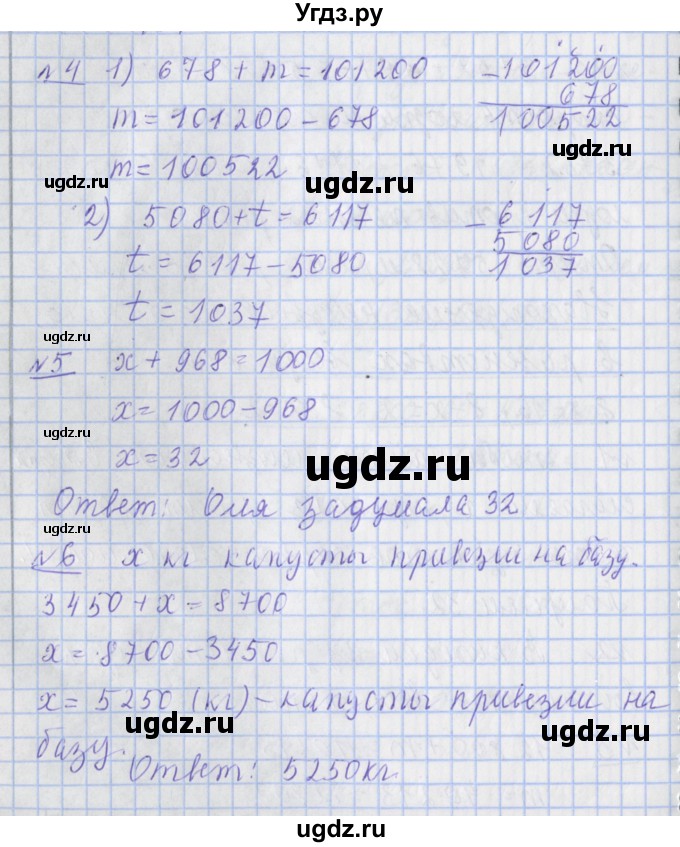 Угдз.ру
№4 1) 678 + m = 101200
m = 101200 - 678
m = 100522
- 101200
678
100522
ugdz.ru
ugdz.ru
ugdz.ru
2) 5080 + t = 6117
t = 6117 - 5080
t = 1037
- 6117
5080
1037
ugdz.ru
ugdz.ru
№5 x + 968 = 1000
x = 1000 - 968
x = 32
ugdz.ru
ugdz.ru
Ответ: Оля задумала 32
ugdz.ru
№6 x кг капусты привезли на базу.
3450 + x = 8700
x = 8700 - 3450
x = 5250 (кг) - капусты привезли на
базу.
ugdz.ru
ugdz.ru
ugdz.ru
Ответ: 5250кг.
ugdz.ru
ugdz.ru